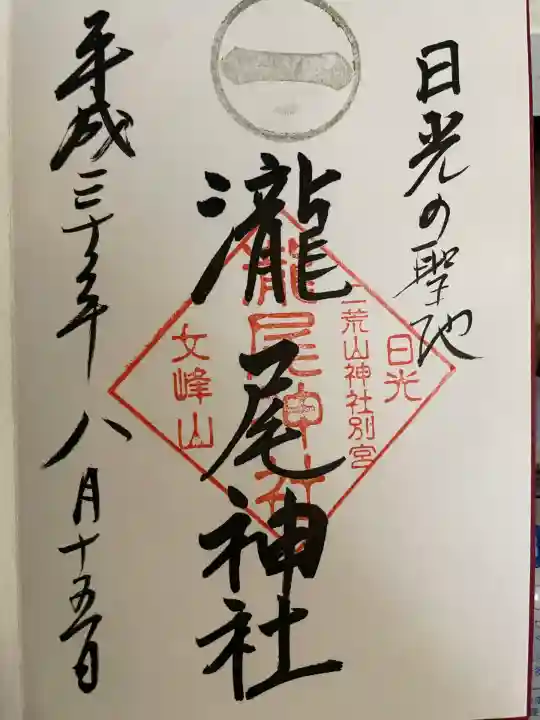 日光の聖地
一
瀧尾神社
日光
二荒山神社別宮
瀧尾神社
女峰山
平成三十年八月十五日